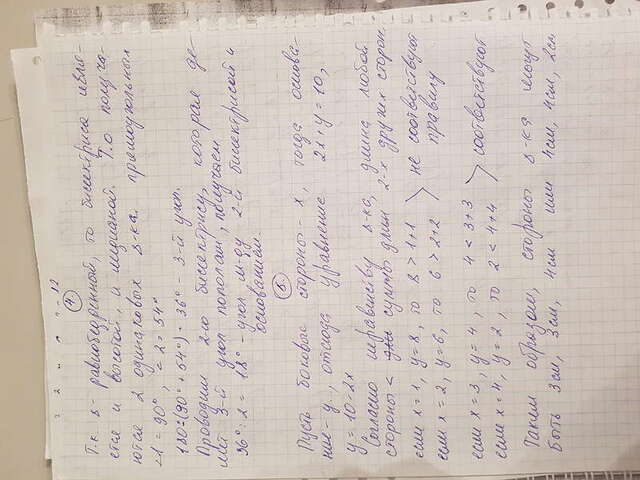 ④
Т.к. Δ - равнобедренный, то биссектриса явля-
ется и высотой, и медианой. Т.о получа-
ются 2 одинаковых Δ-ка. прямоугольных
<1 = 90°, <2 = 54°
180-(90°+54°) = 36° - 3-й угол.
Проводим 2-ю биссектрису, которая де-
лит 3-й угол пополам, получаем
36°:2 = 18° - угол м-ду 2-й биссектрисой и
основанием.
⑤
Пусть боковые стороны - x, тогда основа-
ние - y, отсюда уравнение 2x+y=10,
y=10-2x
Согласно неравенству Δ-ка, длина любой
стороны < суммы длин 2-х других сторон.
если x=1, y=8, то 8>1+1
если x=2, y=6, то 6>2+2 > не соответствуют правилу
если x=3, y=4, то 4<3+3
если x=4, y=2, то 2<4+4 > соответствуют
Таким образом, стороны Δ-ка могут
быть 3см, 3см, 4см или 4см, 4см, 2см